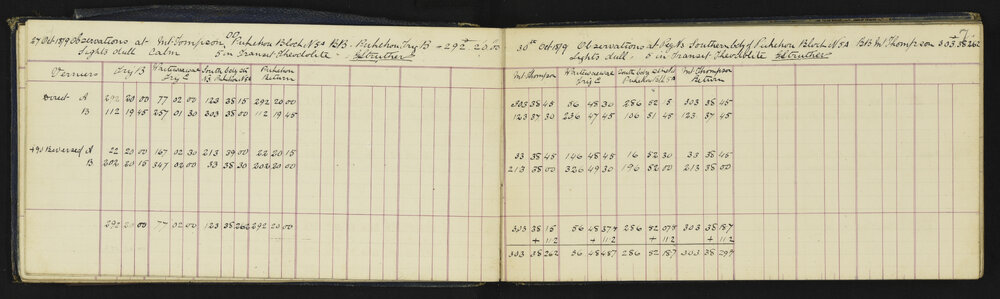 27 Oct 1879 Observations at Mt Thompson Pukehou Block No 5A BB. Pukehou Trig B = 292° 20.00
Lights dull Calm 5 in Transit Theodolite
Verniers Trig B Waitewaewae Trig 2 South bdy stn Pukehou No 5A Pukehou Return
Direct A 292 20 00 77 02 00 123 38 15 292 20 00
B 112 19 45 257 01 30 303 38 00 112 19 45
+90 Reversed A 22 20 00 167 02 30 213 39 00 22 20 15
B 202 20 15 347 02 00 33 38 30 202 20 00
292 20 00 77 02 00 123 38 262 292 20 00
7
30th Oct 1879 Observations at Peg No Southern bdy of Pukehou Block No 5A BB Mt Thompson 303 38 262
Lights dull 5 in Transit Theodolite
Mt Thompson Waitewaewae Trig 2 South bdy Pukehou Blk 5A Mt Thompson Return
303 38 45 56 48 30 286 52 15 303 38 45
123 37 30 236 47 45 106 51 45 123 37 45
33 38 45 146 48 45 16 52 30 33 38 45
213 38 00 326 49 30 196 52 00 213 38 00
303 38 15 56 48 375 286 52 075 303 38 187
+ 112 + 112 + 112 + 112
303 38 262 56 48 487 286 52 187 303 38 299